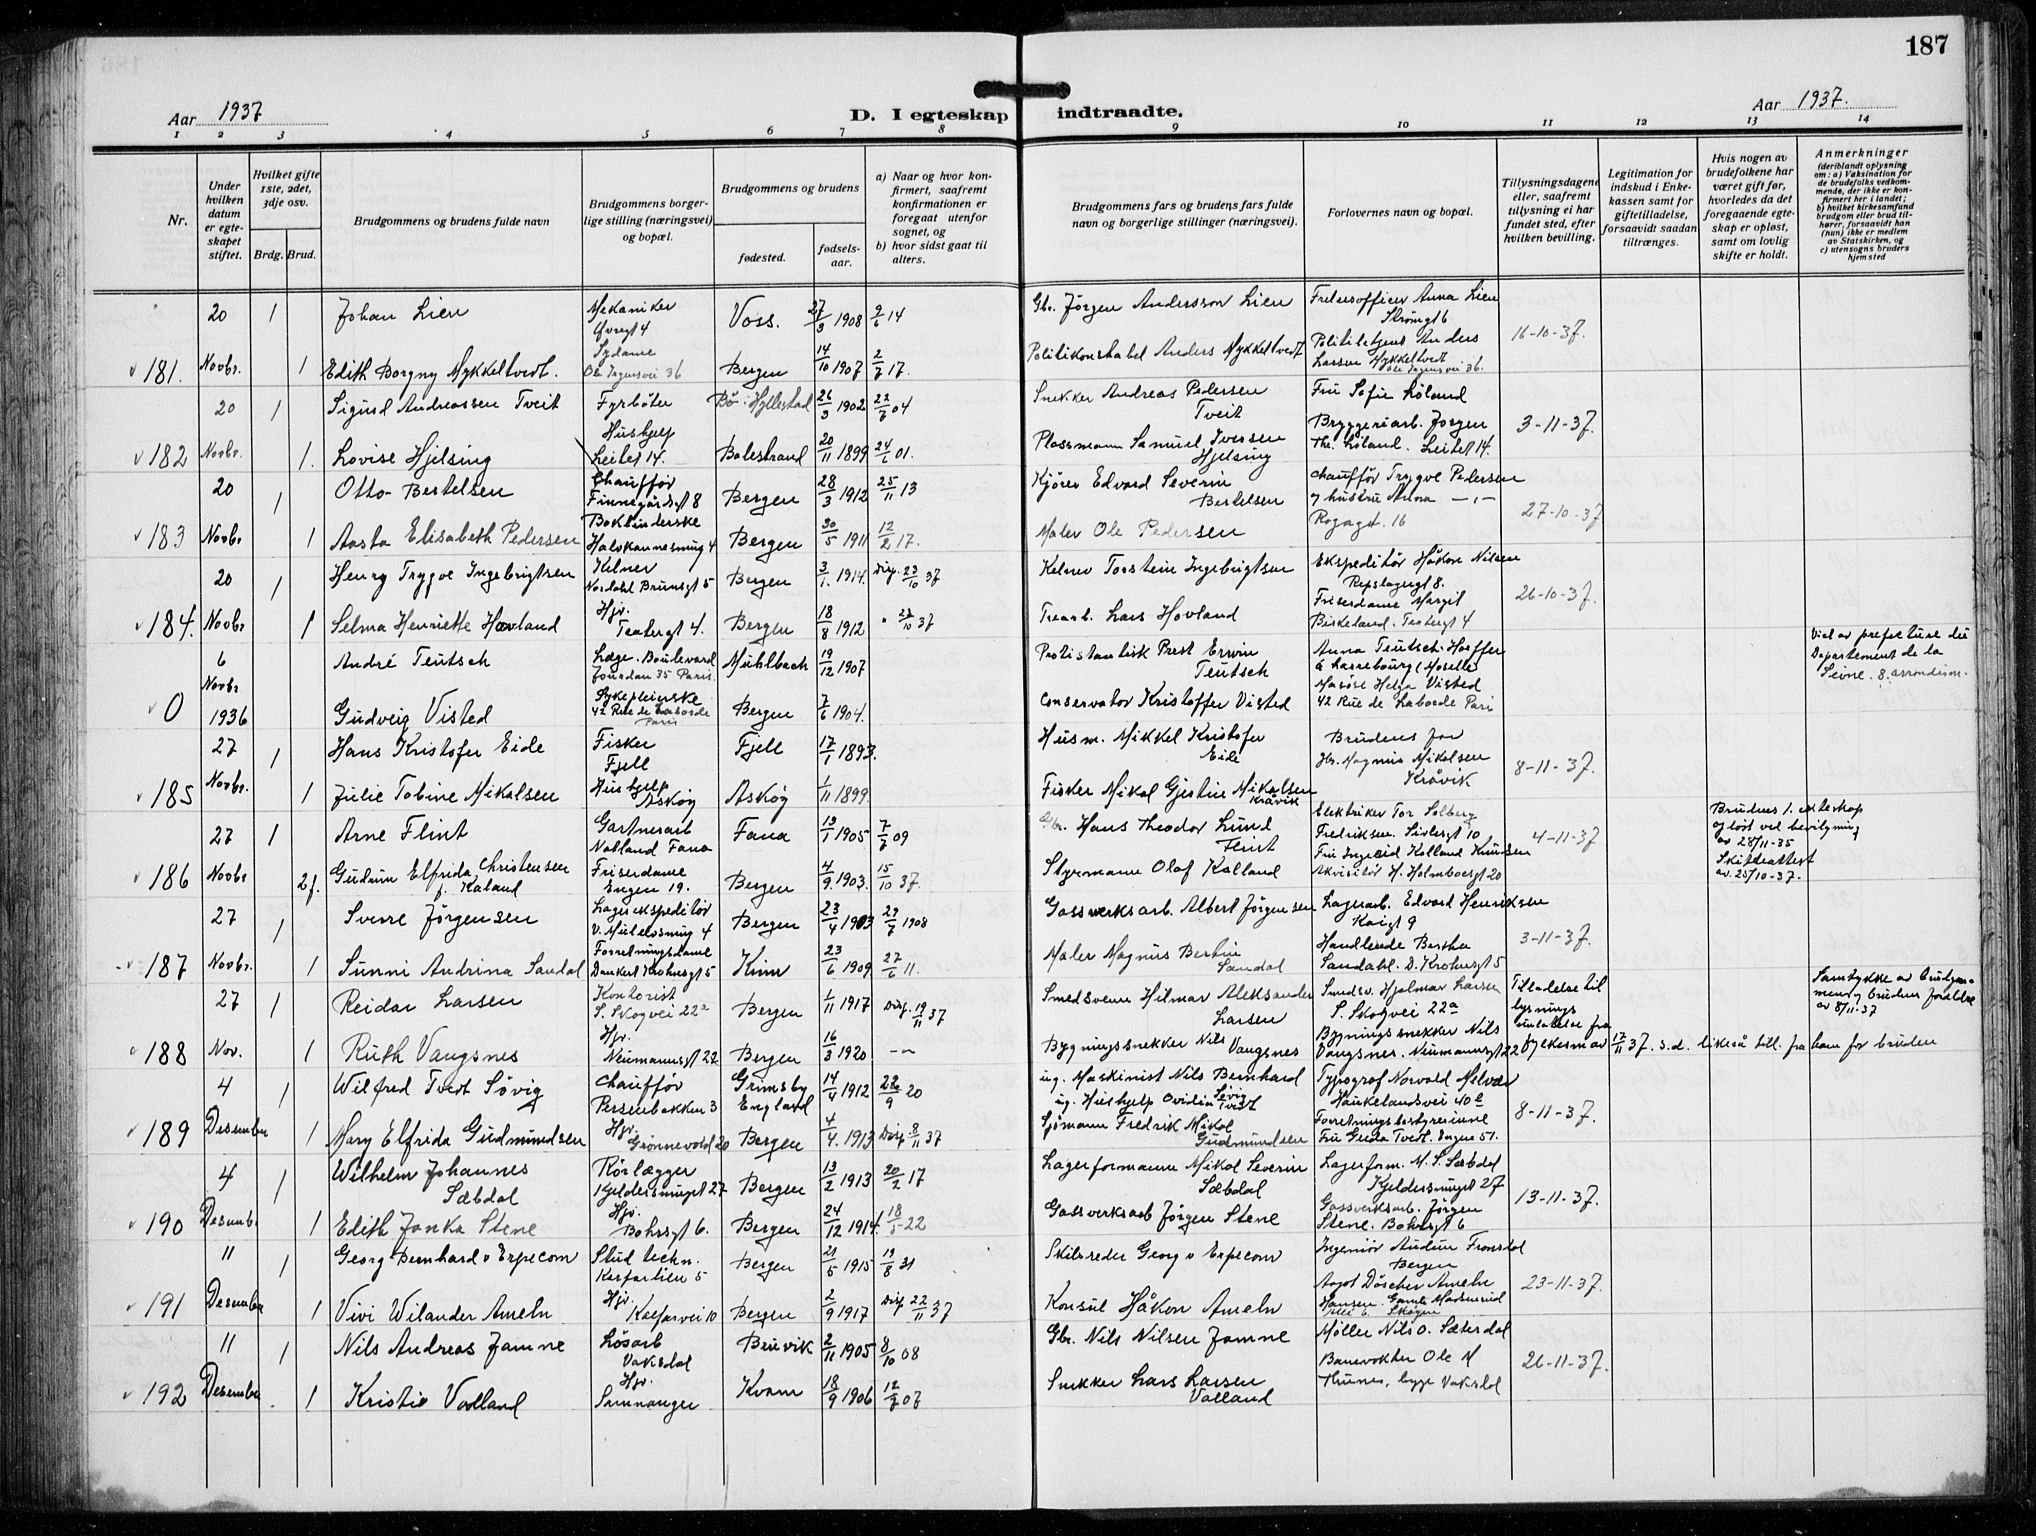 187
Aar 1937
D. I egteskap indtraadte.
Aar 1937.
1 2 3 4 5 6 7 8 9 10 11 12 13 14
Nr.
Under hvilken datum er egteskapet stiftet.
Hvilket gifte 1ste, 2det, 3dje osv.
Brdg. Brud.
Brudgommens og brudens fulde navn
Brudgommens borgerlige stilling (næringsvei) og bopæl.
Brudgommens og brudens
fødested.
fødselsaar.
a) Naar og hvor konfirmert, saafremt konfirmationen er foregaat utenfor sognet, og
b) hvor sidst gaat til alters.
Brudgommens fars og brudens fars fulde navn og borgerlige stillinger (næringsvei).
Forlovernes navn og bopæl.
Tillysningsdagene eller, saafremt tillysning ei har fundet sted, efter hvilken bevilling.
Legitimation for indskud i Enkekassen samt for giftetilladelse, forsaavidt saadan tiltrænges.
Hvis nogen av brudefolkene har været gift før, hvorledes da det foregaaende egteskap er opløst, samt om lovlig skifte er holdt.
Anmerkninger
(deriblandt oplysning om: a) Vaksination for de brudefolks vedkommende, der ikke er konfirmert her i landet;
b) hvilket kirkesamfund brudgom eller brud tilhører, forsaavidt han (hun) ikke er medlem av Statskirken, og
c) utensogns bruders hjemsted
20 1 Johan Lien Mekaniker 4 Voss. 27/3 1908 9/6 14 Gbr. Jørgen Andersson Lien Frelsesofficer Anna Lien Strømgt 6 16-10-37.
181. Novbr. 1 Edith Borgny Mykkeltvedt. Sydame Ole Irgensvei 36 Bergen 14/10 1907 2/7 17. Politikonstabel Anders Mykkeltvedt Politibetjent Anders Larsen Mykkeltvedt Ole Irgensvei 36.
20 1 Sigurd Andreassen Tveit Fyrbøter Bø i Hyllestad 26/3 1902 04 Snekker Andreas Pedersen Tveit Fru Sofie Løland 3-11-37.
182 Novbr. 1. Lovise Hjelsing Hushjelp Leitet 14. Balestrand 20/11 1899 24/6 01. Plassmann Samuel Iversen Hjelsing Bryggeriarb. Jørgen Th. Løland. Leitet 14.
20 1 Otto Bertelsen Chauffør Finnegårdsgt 8 Bergen 28/3 1912 25/11 13 Kjører Edvard Severin Bertelsen Chauffør Trygve Pedersen og hustru Anna — „ — Rozagt. 16 27-10-37
183 Novbr 1 Aasta Elisabeth Pedersen Bokbinderske Halvkannesmug 4 Bergen 30/5 1911 12/2 17. Maler Ole Pedersen
20 1 Henry Trygve Ingebrigtsen Kelner Nordahl Brunsgt 5 Bergen 3/1. 1914. Disp. 23/10 37 Kelner Torstein Ingebrigtsen Ekspeditør Håkon Nilsen Repslagergt 8. 26-10-37.
184. Novbr 1 Selma Henriette Hovland Hjv. Teatergt 4. Bergen 18/8 1912 " 23/10 37 Trearb. Lars Hovland Friserdame Margit Birkeland. Teatergt 4
6 Novbr 1936 André Teutsch Læge. Boulevard Jourdan 35 Paris. Mühlbach 19/12 1907 Protistantisk Prest Erwin Teutsch Anna Teutsch-Hoeffer à Sarrebourg (Moselle) Viet av prefecture du Departement de la Seine. 8. arrondism.
0 Gudveig Visted Sykepleierske 42 Rue de Laborde Paris Bergen 7/6 1904. Conservator Kristoffer Visted Masøse Helga Visted 42 Rue de Laborde Paris
27 1 Hans Kristofer Eide Fisker Fjell Fjell 17/1 1893. Husm. Mikkel Kristofer Eide Brudens far Hr. Magnus Mikalsen Kråvik 8-11-37.
185 Novbr. 1 Julie Tobine Mikalsen Hushjelp Askøy Askøy 1/11 1899. Fisker Mikal Gjertin Mikalsen Kråvik
27 1 Arne Flint Gartnerarb Natland Fana Fana 13/1 1905 7/7 09 Gbr. Hans Theodor Lund Flint Elektriker Tor Solberg Fredriksen. Sivlesgt 10 4-11-37 Brudens 1. ekteskap opløst ved bevilgning av 28/11-35 Skifteattest av 25/10-37.
186 Novbr 2 f. Gudrun Elfrida Christensen f. Kaland Friserdame Engen 19. Bergen 4/9. 1903. 15/10 37. Styrmann Olaf Kalland Fru Ingerid Kolland Knudsen Akvisitør H. Holmboesgt 20
27 1 Sverre Jørgensen Lagerekspeditør V. Murelvsmug 4 Bergen 23/4 1903 1908 Gassverksarb. Albert Jørgensen Lagerarb. Edvard Henriksen Kaigt 9 3-11-37.
187 Novbr. 1 Sunni Andrina Sandal Forretningsdame Dankert Krohnsgt 5 Kinn 23/6 1909 27/6 11. Maler Magnus Bertin Sandal Handlende Bertha Sandahl. D. Krohnsgt 5
27 1 Reidar Larsen Kontorist S. Skogvei 22a Bergen 1/11 1917 Disp. 19/11 37 Smedsvenn Hilmar Aleksander Larsen Smedsv. Hjalmar Larsen S. Skogvei 22a Tilladelse til lysnings undlatelse fra Samtykke av brudgommen og brudens foreldre av 8/11-37
188 Nov. 1 Ruth Vangsnes Hjv. Neumannsgt 22 Bergen 16/3 1920 — " — Bygningssnekker Nils Vangsnes Bygningssnekker Nils Vangsnes. Neumannsgt 22 Fylkesm av 17/11 37. s.d. likeså till. fra ham for bruden
4 1 Wilfred Tvedt Søvig Chauffør Persenbakken 3 Grimsby England 14/4 1912 22/9 20 ug. Maskinist Nils Bernhard Søvig ug. Hushjelp Ovidia Tvedt Typograf Norvald Milvær Haukelandsvei 40c 8-11-37.
189 Desember 1 Mary Elfrida Gudmundsen Hjv. Grønnevold 20 Bergen 4/4. 1913 Disp. 8/11 37 Sjømann Fredrik Mikal Gudmundsen Forretningsbestyrerinne Fru Gerda Tvedt. Engen 51.
4 1 Wilhelm Johannes Sæbdal Rørlægger Kjeldersmuget 27 Bergen 13/2 1913 20/2 17 Lagerformann Mikal Severin Sæbdal Lagerform. M. S. Sæbdal Kjeldersmuget 27 13-11-37.
190 Desembr. 1 Edith Janka Stene Hjv. Bohrsgt 6. Bergen 24/12 1914. 18/5 22 Gassverksarb Jørgen Stene Gassverksarb. Jørgen Stene. Bohrsgt 6
11 1 Georg Bernhard v Erpecom Stud techn. Kalfarlien 5 Bergen 21/5 1915 19/8 31 Skibsreder Georg v Erpecom Ingeniør Audun Fronsdal Bergen 23-11-37.
191 Desember 1 Vivi Wilander Ameln Hjv. Kalfarvei 10 Bergen 2/9 1917 Disp 22/11 37 Konsul Håkon Ameln Aagot Döscher Ameln Hansen. Gamle Madserud Allé 6. Skøyen
11 1 Nils Andreas Jamne Løsarb Vaksdal Bruvik 2/11 1905 8/10 08 Gbr. Nils Nilsen Jamne Møller Nils O. Sæterdal 26-11-37.
192 Desember 1 Kristie Valland Hjv. Samnanger Kvam 18/9 1906 12/7 07 Snekker Lars Larsen Valland Banevokter Ole M Thunes, begge Vaksdal